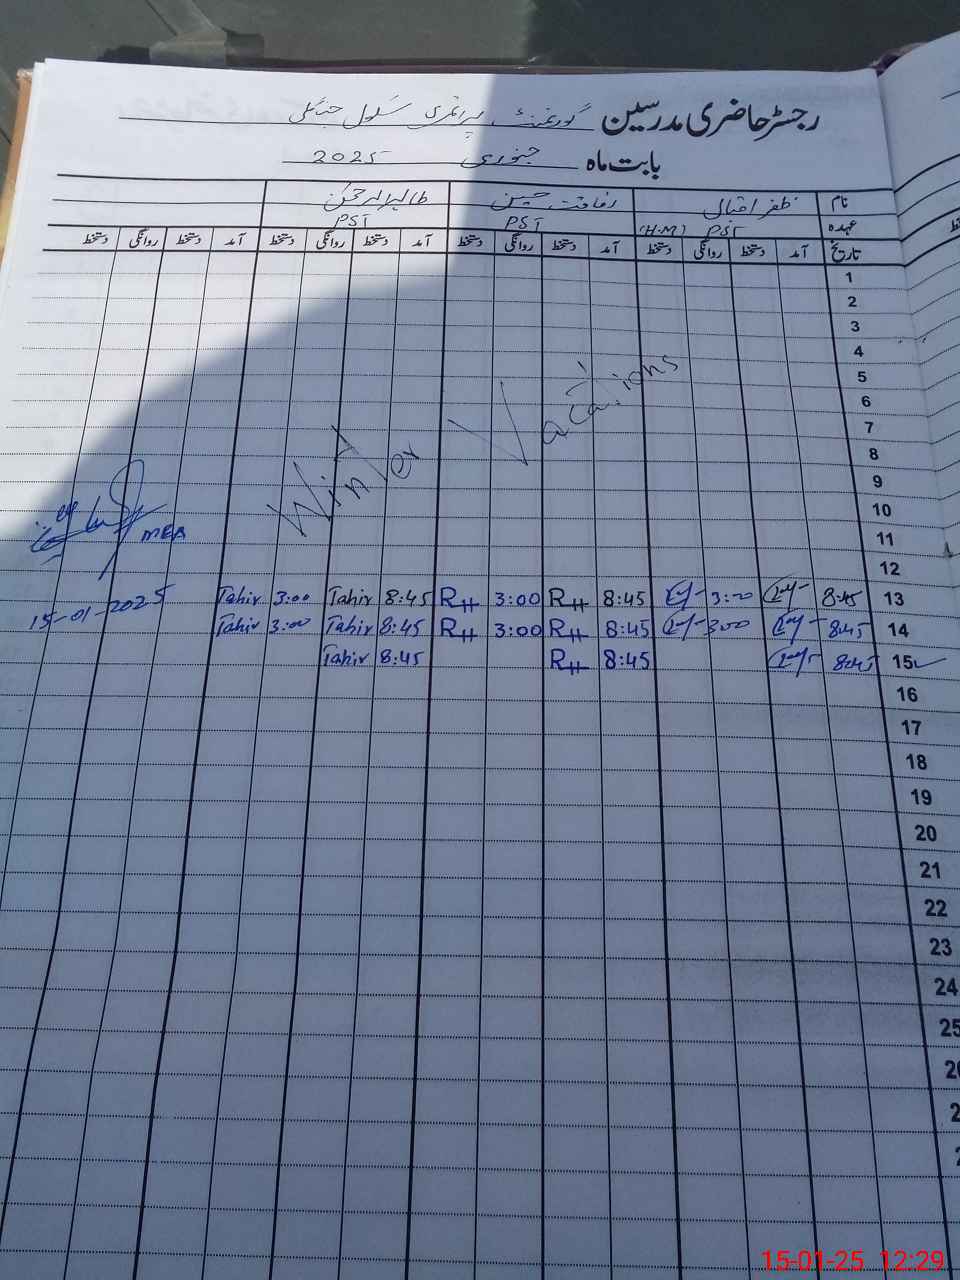 رجسٹر حاضری مدرسین گورنمنٹ پرائمری سکول
بابت ماہ جنوری 2025
نام ظفر اقبال رفاقت حسین
عہدہ PST (H.M) PST PST
تاریخ آمد دستخط روانگی دستخط آمد دستخط روانگی دستخط آمد دستخط روانگی دستخط آمد دستخط روانگی دستخط
1
2
3
4
5
6
7
8
9
10
11
12
Winter Vacations
MEA
15-01-2025
13 8:45 3:00 8:45 RH 3:00 RH 8:45 Tahir 3:00 Tahir
14 8:45 3:00 8:45 RH 3:00 RH 8:45 Tahir 3:00 Tahir
15 8:45 8:45 RH 8:45 Tahir
16
17
18
19
20
21
22
23
24
25
15-01-25 12:29